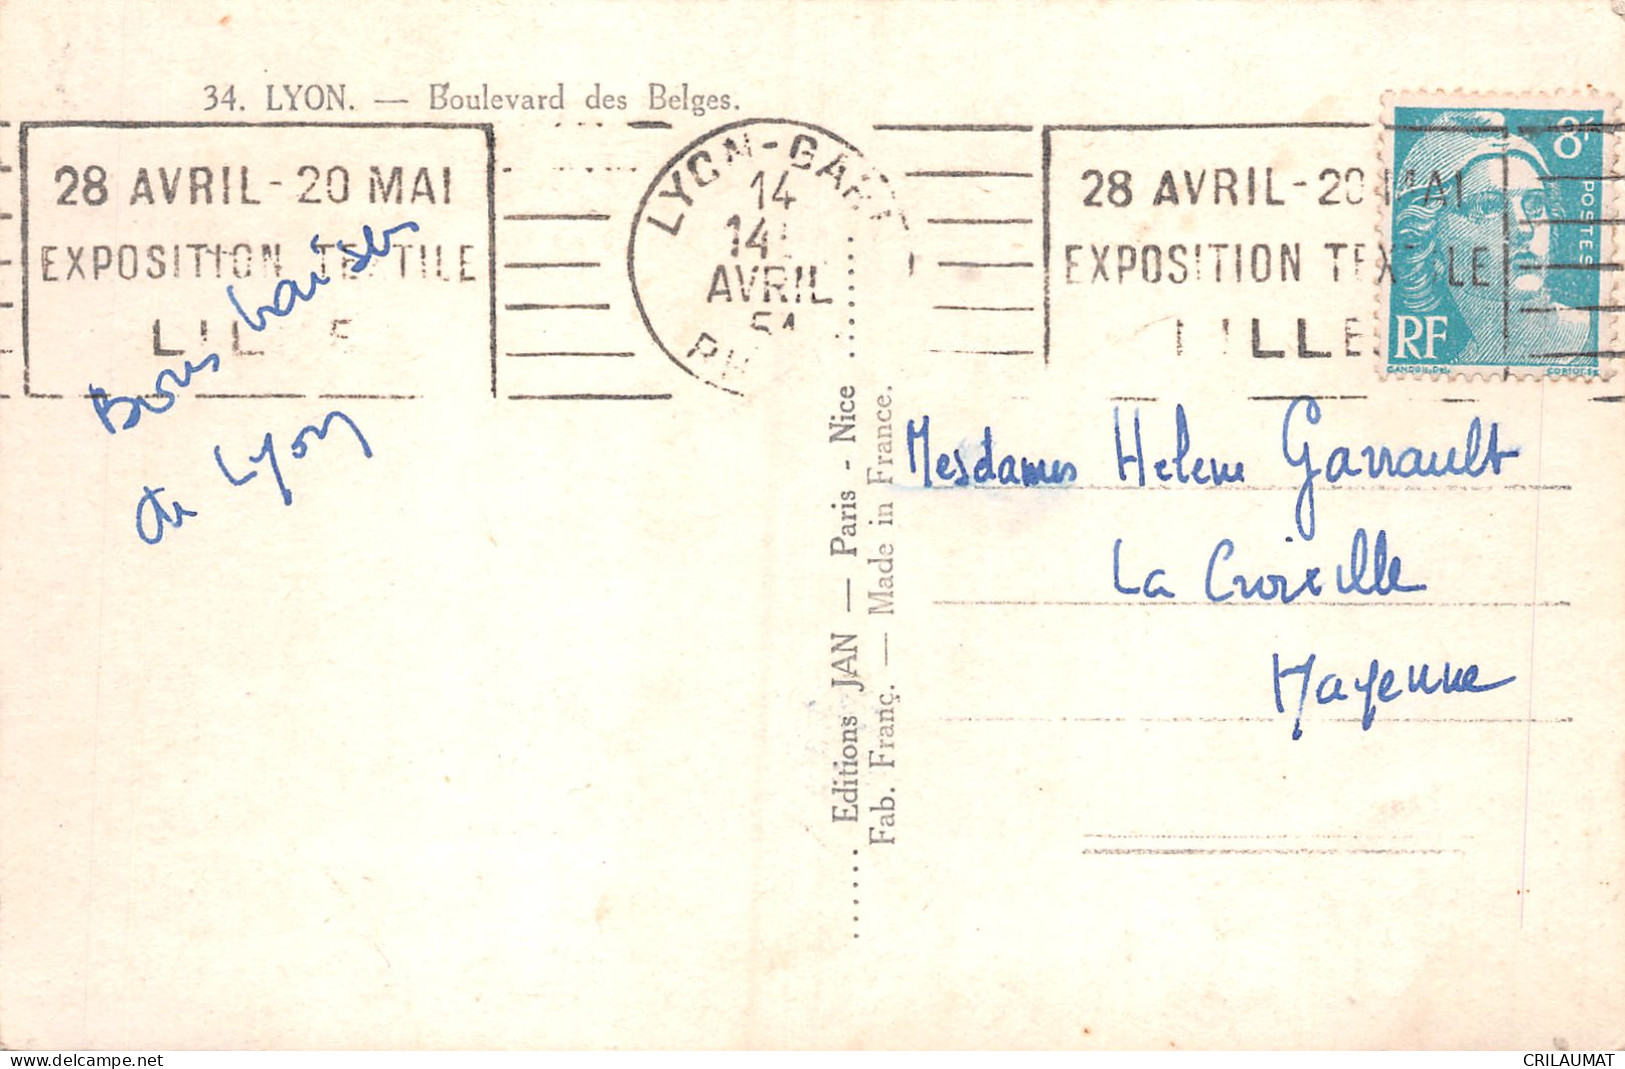 34. LYON. — Boulevard des Belges.
28 AVRIL - 20 MAI
EXPOSITION TEXTILE
LILLE
LYON-GARE
14
14
AVRIL
RH
28 AVRIL - 20 MAI
EXPOSITION TEXTILE
LILLE
8F
POSTES
RF
GANDON, DEL.
CORTOT, SC.
Bons baisers
de Lyon
Editions JAN — Paris - Nice
Fab. Franç. — Made in France.
Mesdames Helene Garrault
La Croixille
Mayenne
delcampe.net
CRILAUMAT